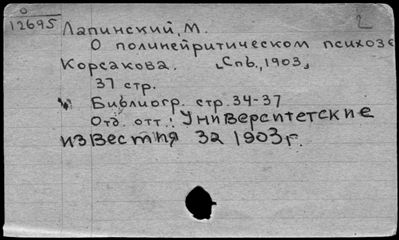 0
12695
2
Лапинский, М.
О полинейритическом психозе
Корсакова. Спб., 1903.
37 стр.
Библиогр. стр. 34-37
Отд. отт.: Университетские
известия за 1903 г.